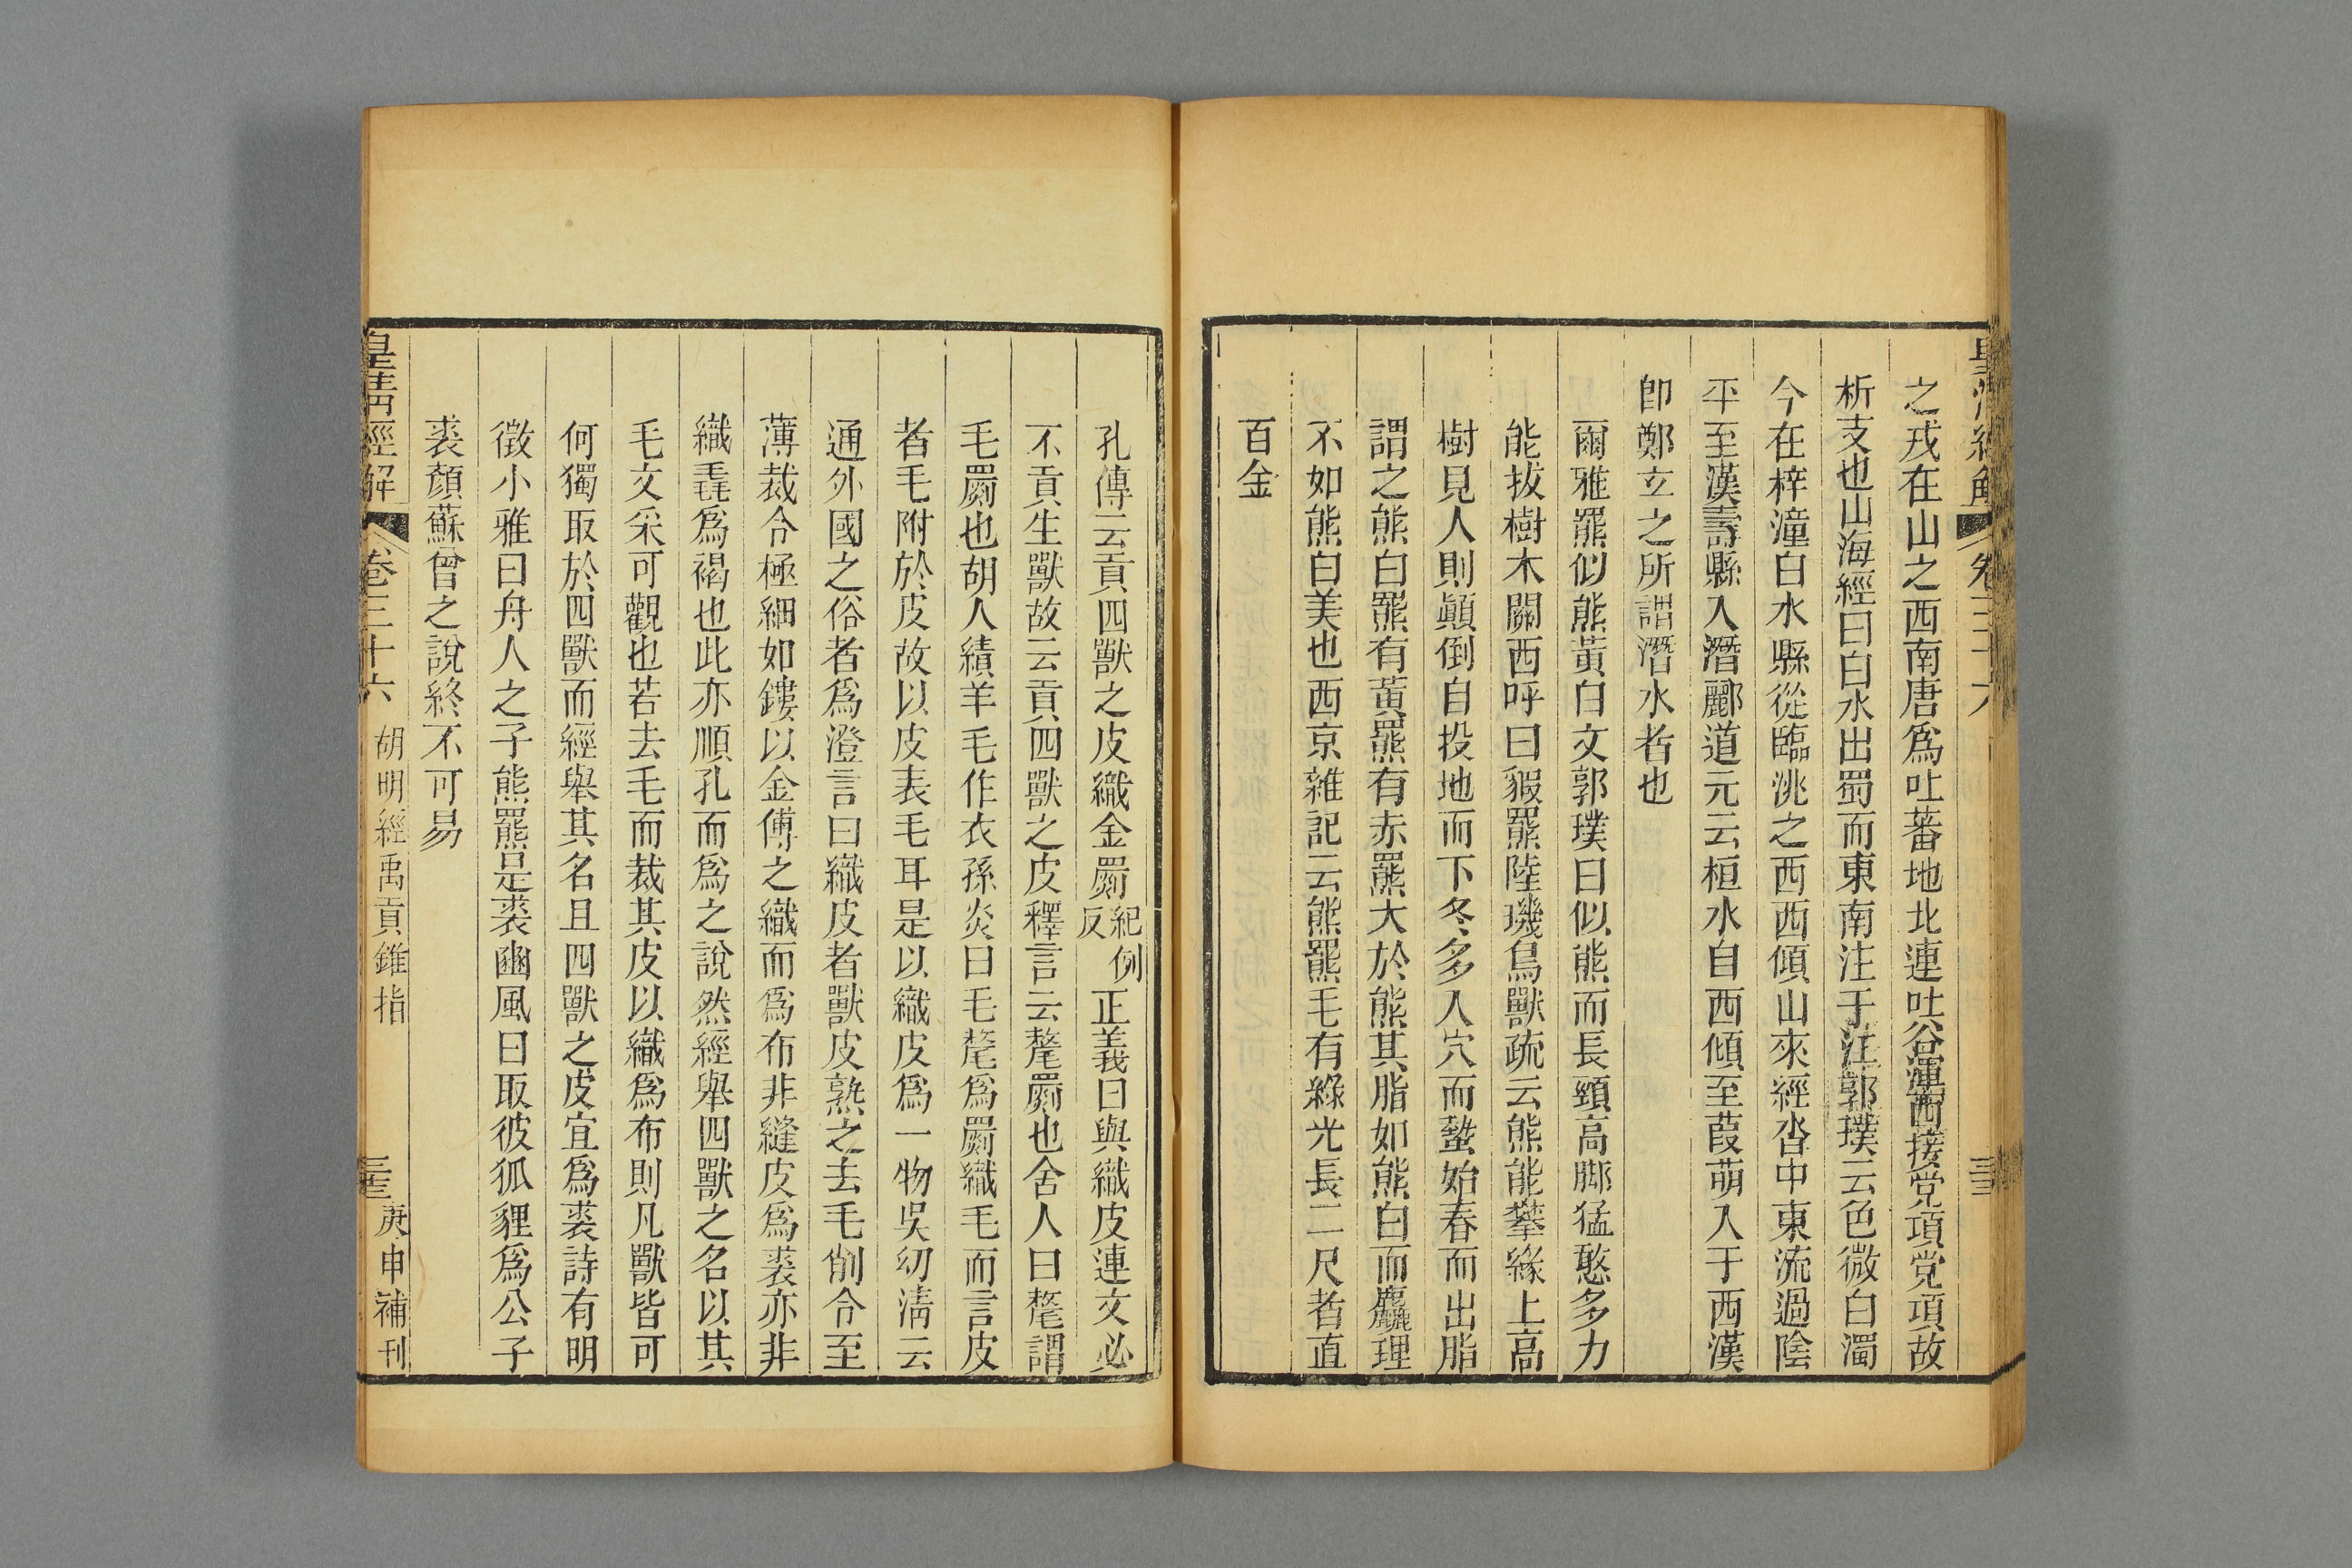 之戎在山之西南唐爲吐蕃地北連吐谷渾西接党項党項故
析支也山海經曰白水出蜀而東南注于江郭璞云色微白濁
今在梓潼白水縣從臨洮之西西傾山來經沓中東流過陰
平至漢壽縣入潛酈道元云桓水自西傾至葭萌入于西漢
卽鄭玄之所謂潛水者也
爾雅羆似熊黃白文郭璞曰似熊而長頸高腳猛憨多力
能拔樹木關西呼曰貑羆陸璣鳥獸疏云熊能攀緣上高
樹見人則顚倒自投地而下冬多入穴而蟄始春而出脂
謂之熊白羆有黃羆有赤羆大於熊其脂如熊白而麤理
不如熊白美也西京雜記云熊羆毛有綠光長二尺者直
百金
孔傳云貢四獸之皮織金罽紀例反正義曰與織皮連文必
不貢生獸故云貢四獸之皮釋言云氂罽也舍人曰氂謂
毛罽也胡人績羊毛作衣孫炎曰毛氂爲罽織毛而言皮
者毛附於皮故以皮表毛耳是以織皮爲一物吳幼淸云
通外國之俗者爲澄言曰織皮者獸皮熟之去毛削令至
薄裁令極細如鏤以金傅之織而爲布非縫皮爲裘亦非
織毳爲褐也此亦順孔而爲之說然經舉四獸之名以其
毛文采可觀也若去毛而裁其皮以織爲布則凡獸皆可
何獨取於四獸而經舉其名且四獸之皮宜爲裘詩有明
徵小雅曰舟人之子熊羆是裘豳風曰取彼狐貍爲公子
裘顏蘇曾之說終不可易
皇淸經解 卷三十六 胡明經禹貢錐指 三三 庚申補刊